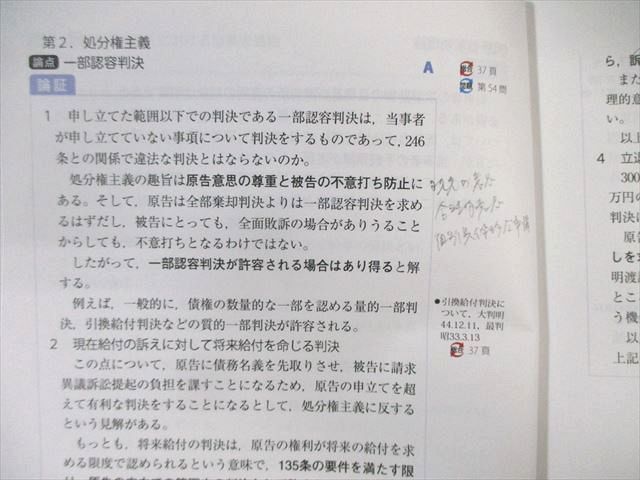 第2．処分権主義
論点 一部認容判決
論証
A
総合 37頁
第54問
1 申し立てた範囲以下での判決である一部認容判決は，当事者
が申し立てていない事項について判決をするものであって，246
条との関係で違法な判決とはならないのか。
処分権主義の趣旨は原告意思の尊重と被告の不意打ち防止に
ある。そして，原告は全部棄却判決よりは一部認容判決を求め
るはずだし，被告にとっても，全面敗訴の場合がありうること
からしても，不意打ちとなるわけではない。
したがって，一部認容判決が許容される場合はあり得ると解
する。
例えば，一般的に，債権の数量的な一部を認める量的一部判
決，引換給付判決などの質的一部判決が許容される。
●引換給付判決に
ついて，大判明
44.12.11，最判
昭33.3.13
総合 37頁
2 現在給付の訴えに対して将来給付を命じる判決
この点について，原告に債務名義を先取りさせ，被告に請求
異議訴訟提起の負担を課すことになるため，原告の申立てを超
えて有利な判決をすることになるとして，処分権主義に反する
という見解がある。
もっとも，将来給付の判決は，原告の権利が将来の給付を求
める限度で認められるという意味で，135条の要件を満たす限
ら，訴
また
理的意
い。
以上
4 立退
300
万円の
判決に
原告
しを求
明渡請
とこ
う機
以
上記